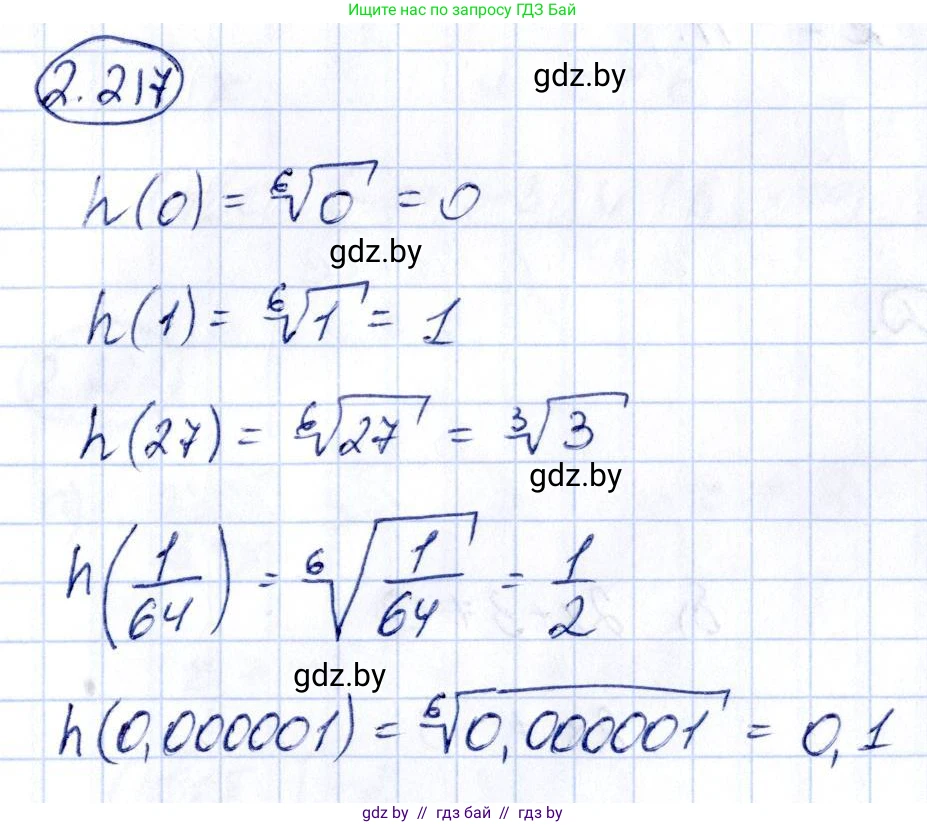 Ищите нас по запросу ГДЗ Бай
2.217
gdz.by
h(0) = ⁶√0 = 0
gdz.by
h(1) = ⁶√1 = 1
h(27) = ⁶√27 = ³√3
gdz.by
h(1/64) = ⁶√(1/64) = 1/2
gdz.by
h(0,000001) = ⁶√0,000001 = 0,1
gdz.by // гдз бай // гдз by